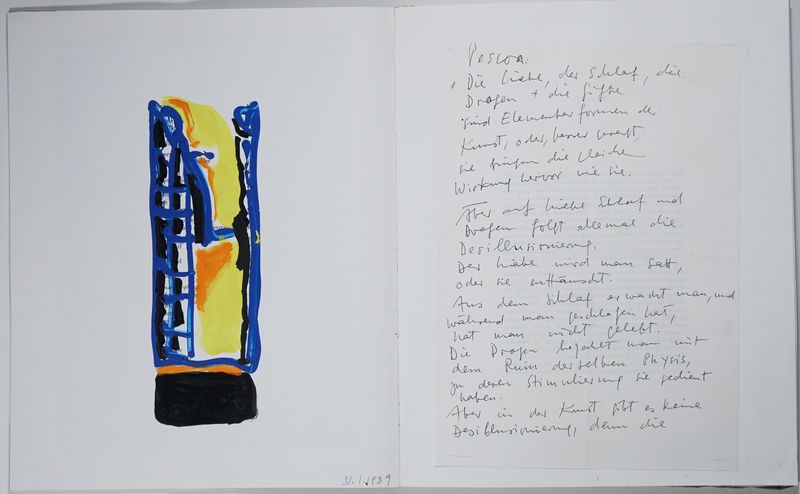 31.1.1989
Pessoa.
"Die Liebe, der Schlaf, die
Drogen + die Gifte
sind Elementarformen der
Kunst, oder, besser gesagt,
sie bringen die gleiche
Wirkung hervor wie sie.
Aber auf Liebe Schlaf und
Drogen folgt allemal die
Desillusionierung.
Der Liebe wird man satt,
oder sie enttäuscht.
Aus dem Schlaf erwacht man, und
während man geschlafen hat,
hat man nicht gelebt.
Die Drogen bezahlt man mit
dem Ruin derselben Physis,
zu deren Stimulierung sie gedient
haben.
Aber in der Kunst gibt es keine
Desillusionierung, denn die